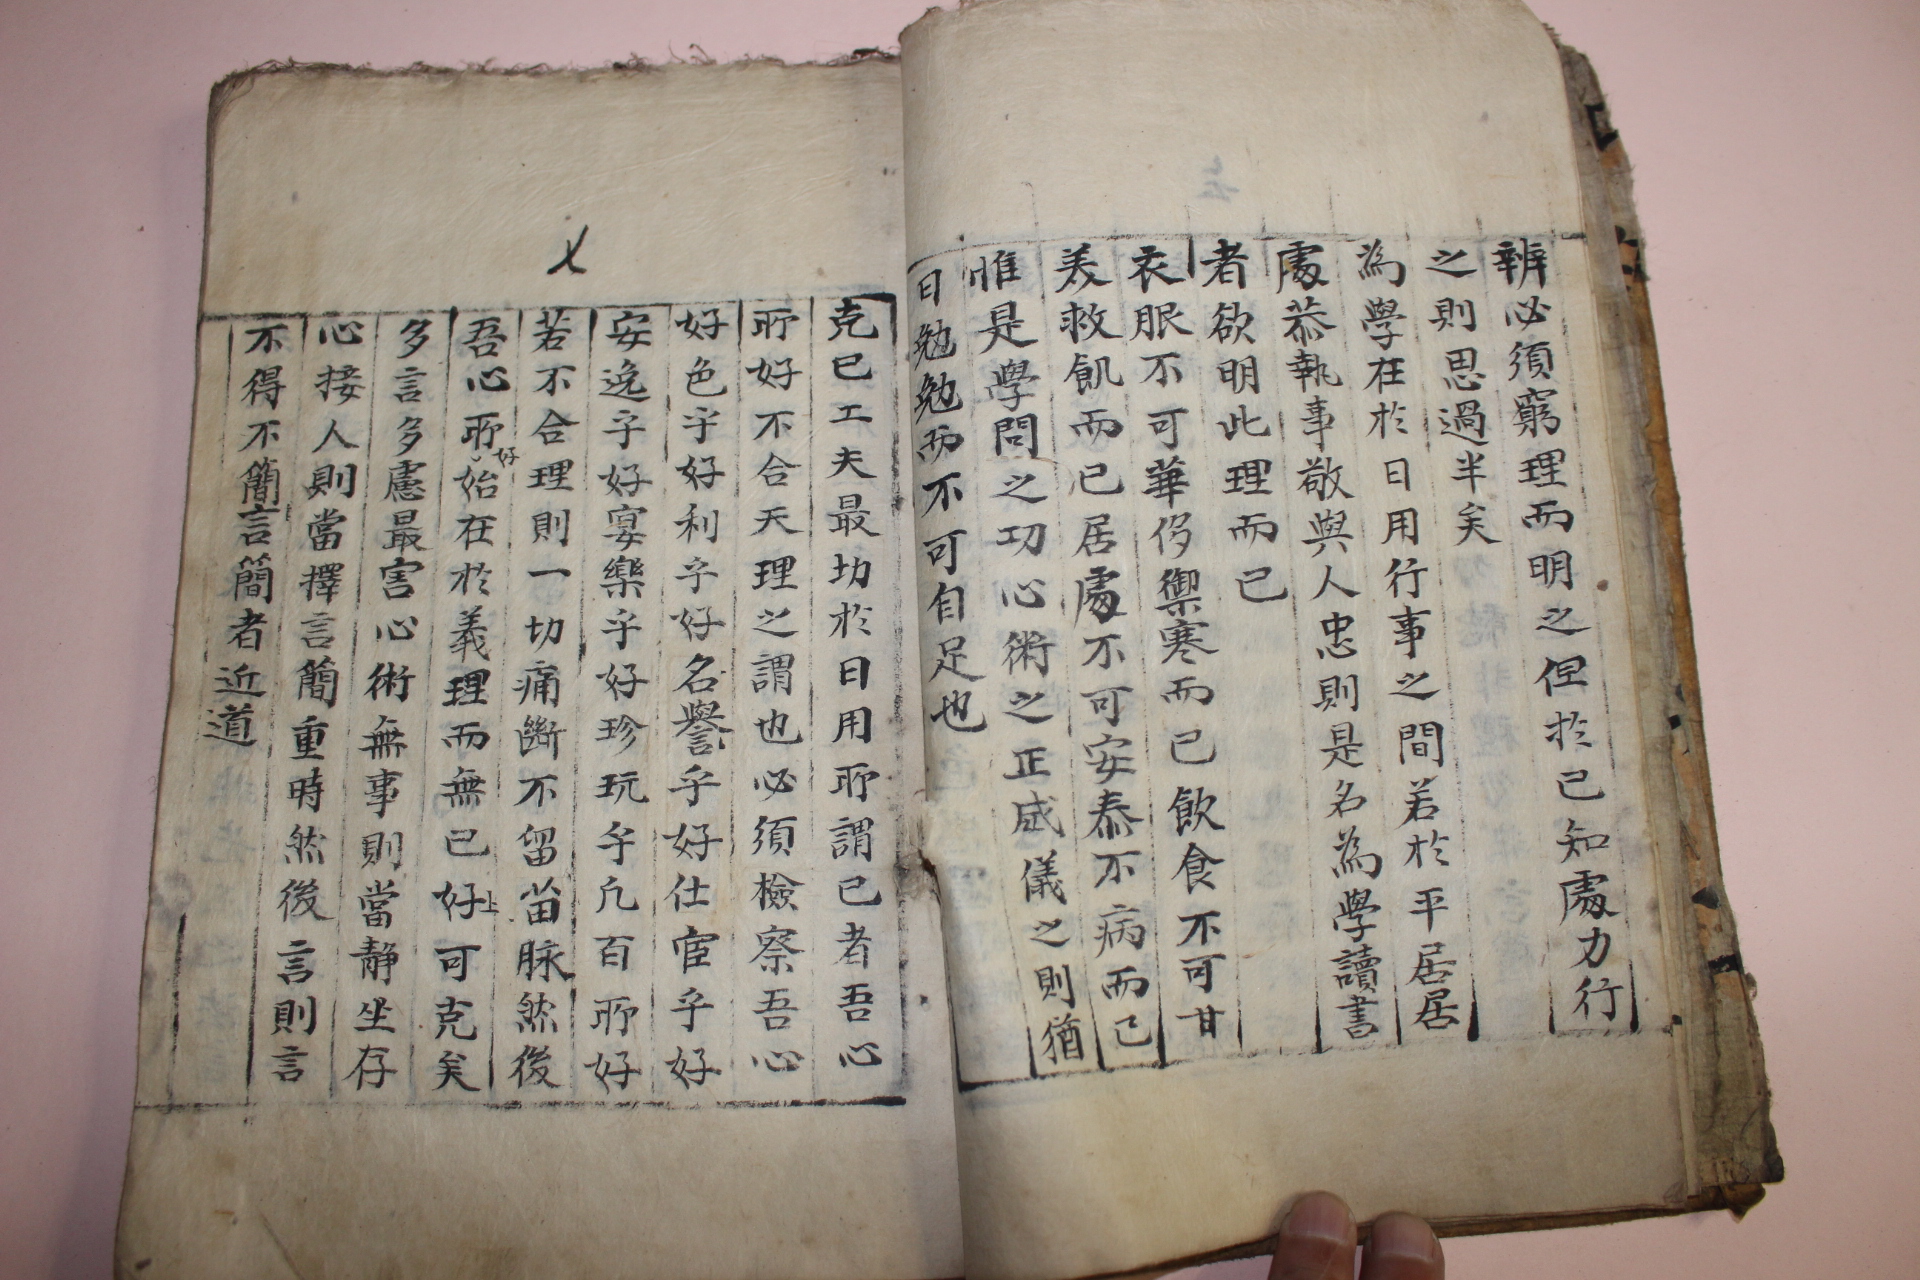 辨必須窮理而明之但於已知處力行
之則思過半矣
為學在於日用行事之間若於平居居
處恭執事敬與人忠則是名為學讀書
者欲明此理而已
衣服不可華侈禦寒而已飲食不可甘
美救飢而已居處不可安泰不病而已
惟是學問之功心術之正威儀之則猶
日勉勉而不可自足也
七
克已工夫最切於日用所謂已者吾心
所好不合天理之謂也必須檢察吾心
好色乎好利乎好名譽乎好仕宦乎好
安逸乎好宴樂乎好珍玩乎凡百所好
若不合理則一切痛斷不留苗脉然後
吾心所好始在於義理而無已上好可克矣
多言多慮最害心術無事則當靜坐存
心接人則當擇言簡重時然後言則言
不得不簡言簡者近道